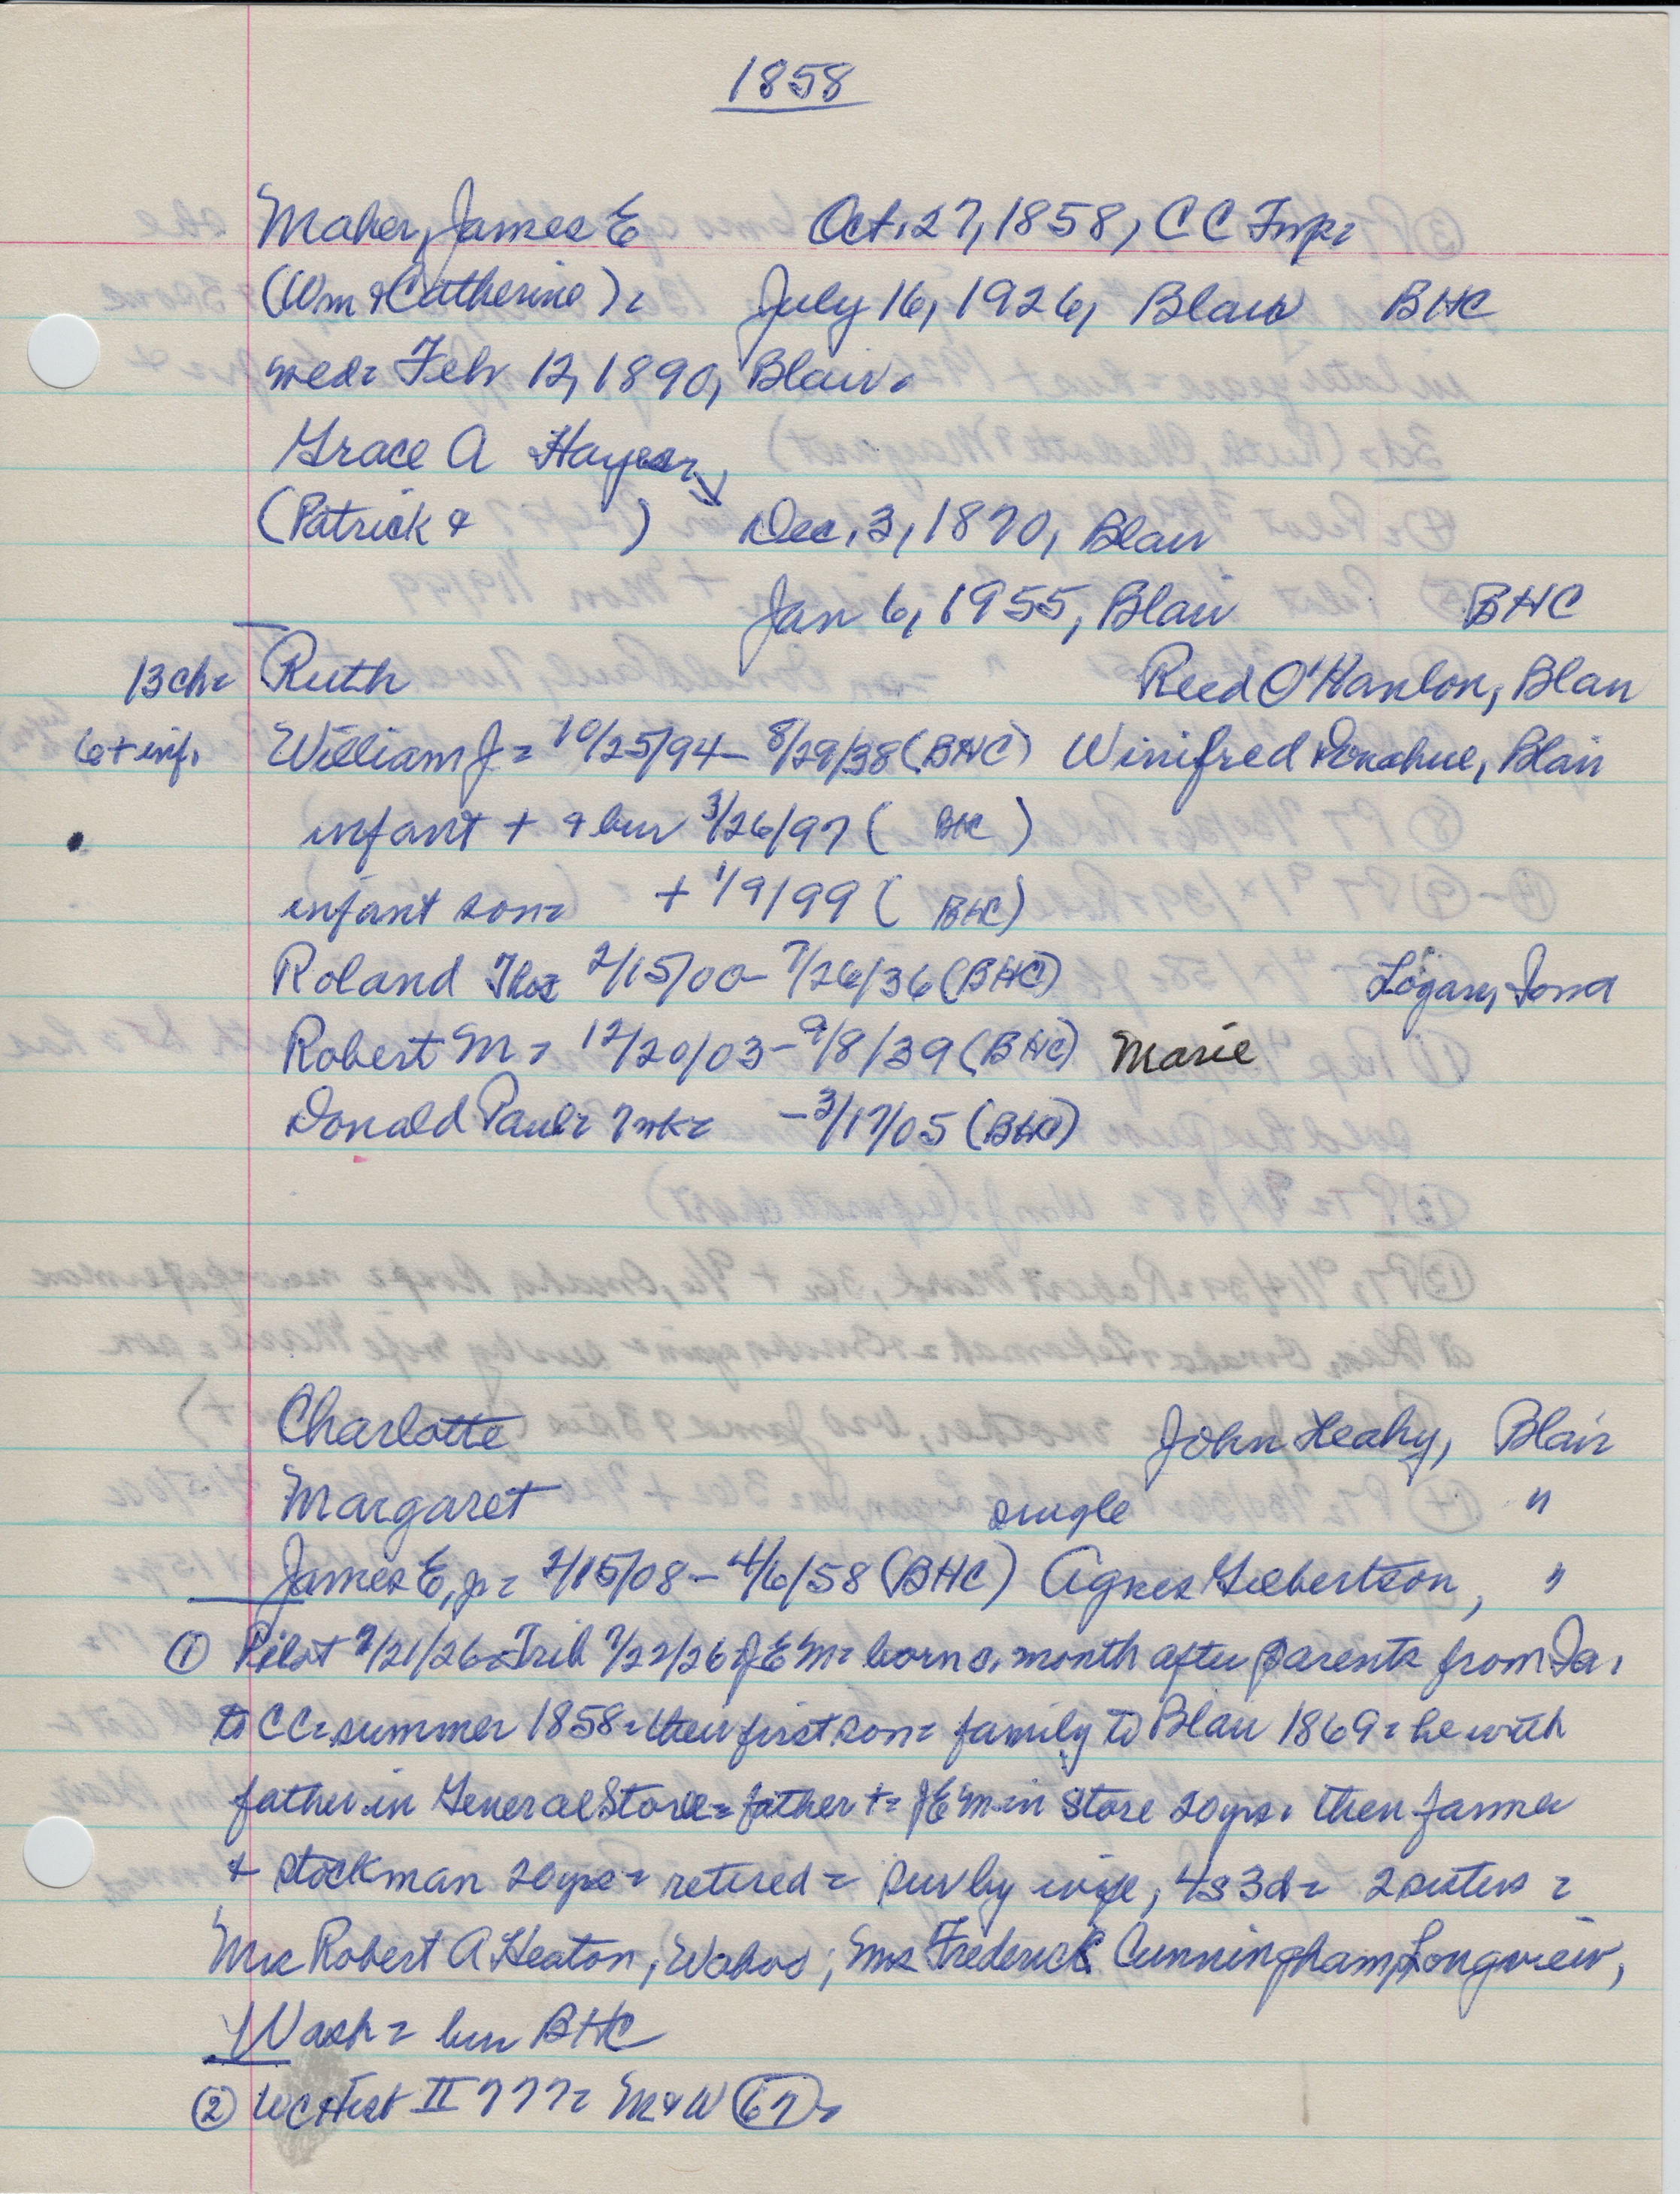 1858
Maher, James E Oct. 27, 1858, CC Twp=
(Wm & Catherine)= July 16, 1926, Blair BHC
med= Feb 12, 1890, Blair=
Grace A Hayes=
(Patrick & ) Dec. 3, 1870, Blair
Jan 6, 1955, Blair BHC
13 ch= Ruth Reed O'Hanlon, Blair
6+inf. William J= 10/25/94- 8/29/38 (BHC) Winifred Donahue, Blair
infant + & bur 3/26/97 ( BHC )
infant son= + 1/9/99 ( BHC)
Roland Thos 2/15/00- 7/26/36 (BHC) Logan, Iowa
Robert M= 12/20/03- 9/8/39 (BHC) Marie
Donald Paul= 7 wk= -3/17/05 (BHC)
Charlotte John Leahy, Blair
Margaret single "
James E, jr= 2/15/08- 4/6/58 (BHC) Agnes Gilbertson, "
① Pilot 7/21/26 = Trib 7/22/26 = JEM= born a. month after parents from Ia.
to CC= summer 1858= their first son= family to Blair 1869= he with
father in General Store= father += JEM in store 20 yrs. then farmer
+ stockman 20 yrs= retired= surv by wife, 4s 3d= 2 sisters=
Mrs Robert A Heaton, Wahoo; Mrs Frederick Cunningham, Longview,
Wash= bur BHC
② WC Hist II 777= M&W (67)=